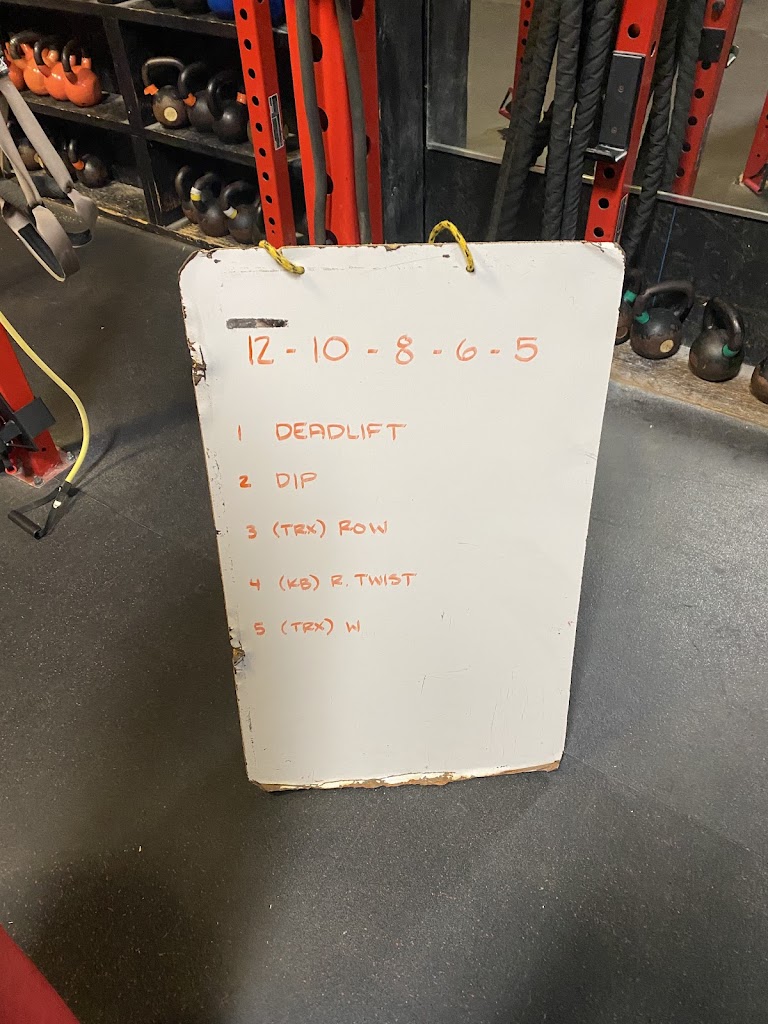 12 - 10 - 8 - 6 - 5
1 DEADLIFT
2 DIP
3 (TRX) ROW
4 (KB) R. TWIST
5 (TRX) W